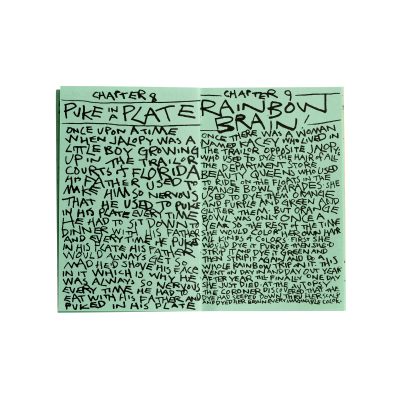 CHAPTER 8
PUKE IN A PLATE
ONCE UPON A TIME
WHEN JALOPY WAS A
LITTLE BOY GROWING
UP IN THE TRAILOR
COURTS OF FLORIDA
HIS FATHER USED TO
MAKE HIM SO NERVOUS
THAT HE USED TO PUKE
IN HIS PLATE EVERY TIME
HE HAD TO SIT DOWN
TO DINNER WITH HIS FATHER
AND EVERY TIME HE PUKED
IN HIS PLATE HIS FATHER
WOULD ALWAYS GET SO
MAD HE'D SHOVE HIS FACE
IN IT WHICH IS WHY HE
WAS ALWAYS SO NERVOUS
EVERY TIME HE HAD TO
EAT WITH HIS FATHER AND
PUKED IN HIS PLATE
CHAPTER 9
RAINBOW
BRAIN
ONCE THERE WAS A WOMAN
NAMED FACEY WHO LIVED IN
THE TRAILOR OPPOSITE JALOPY
WHO USED TO DYE THE HAIR OF ALL
THE DEPARTMENT STORE
BEAUTY QUEENS WHO USED
TO RIDE IN THE FLOATS IN THE
ORANGE BOWL PARADES SHE
USED TO DYE IT ORANGE
AND PURPLE AND GREEN AND
GLITTER THEM BUT ORANGE
BOWL WAS ONLY ONCE A
YEAR SO THE REST OF THE TIME
SHE WOULD DYE HER OWN HAIR
THE KIDS COLORS FIRST SHE
WOULD DYE IT PURPLE THEN SHE'D
STRIP IT AND DYE IT GREEN AND
THEN STRIP IT AGAIN AND DO A
WHOLE RAINBOW TRIP ON IT. THIS
WENT ON DAY IN AND DAY OUT YEAR
AFTER YEAR TILL FINALLY ONE
SHE JUST DIED AT THE AUTOPSY
THE CORONER DISCOVERED THAT THE
DYE HAD SEEPED DOWN THRU HER SCALP
AND DYED HER BRAIN EVERY IMAGINABLE COLOR.